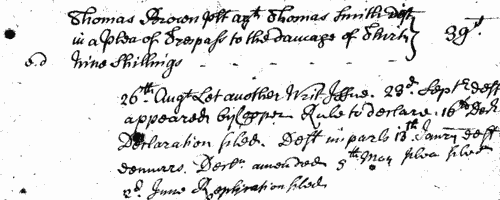 Thomas Brown plt agt Thomas Smith Deft
in a Plea of Trespass to the Damage of Thirty } 39s.
e.d Nine Shillings
26th. Augt Let another Writ Issue. 23d. Septr. deft
appeared by Copper Rule to declare. 16th Decr.
Declaration filed. Deft in parls 13th Janry deft
demurrs. Decln amended 5th May plea filed
2d. June Replication filed